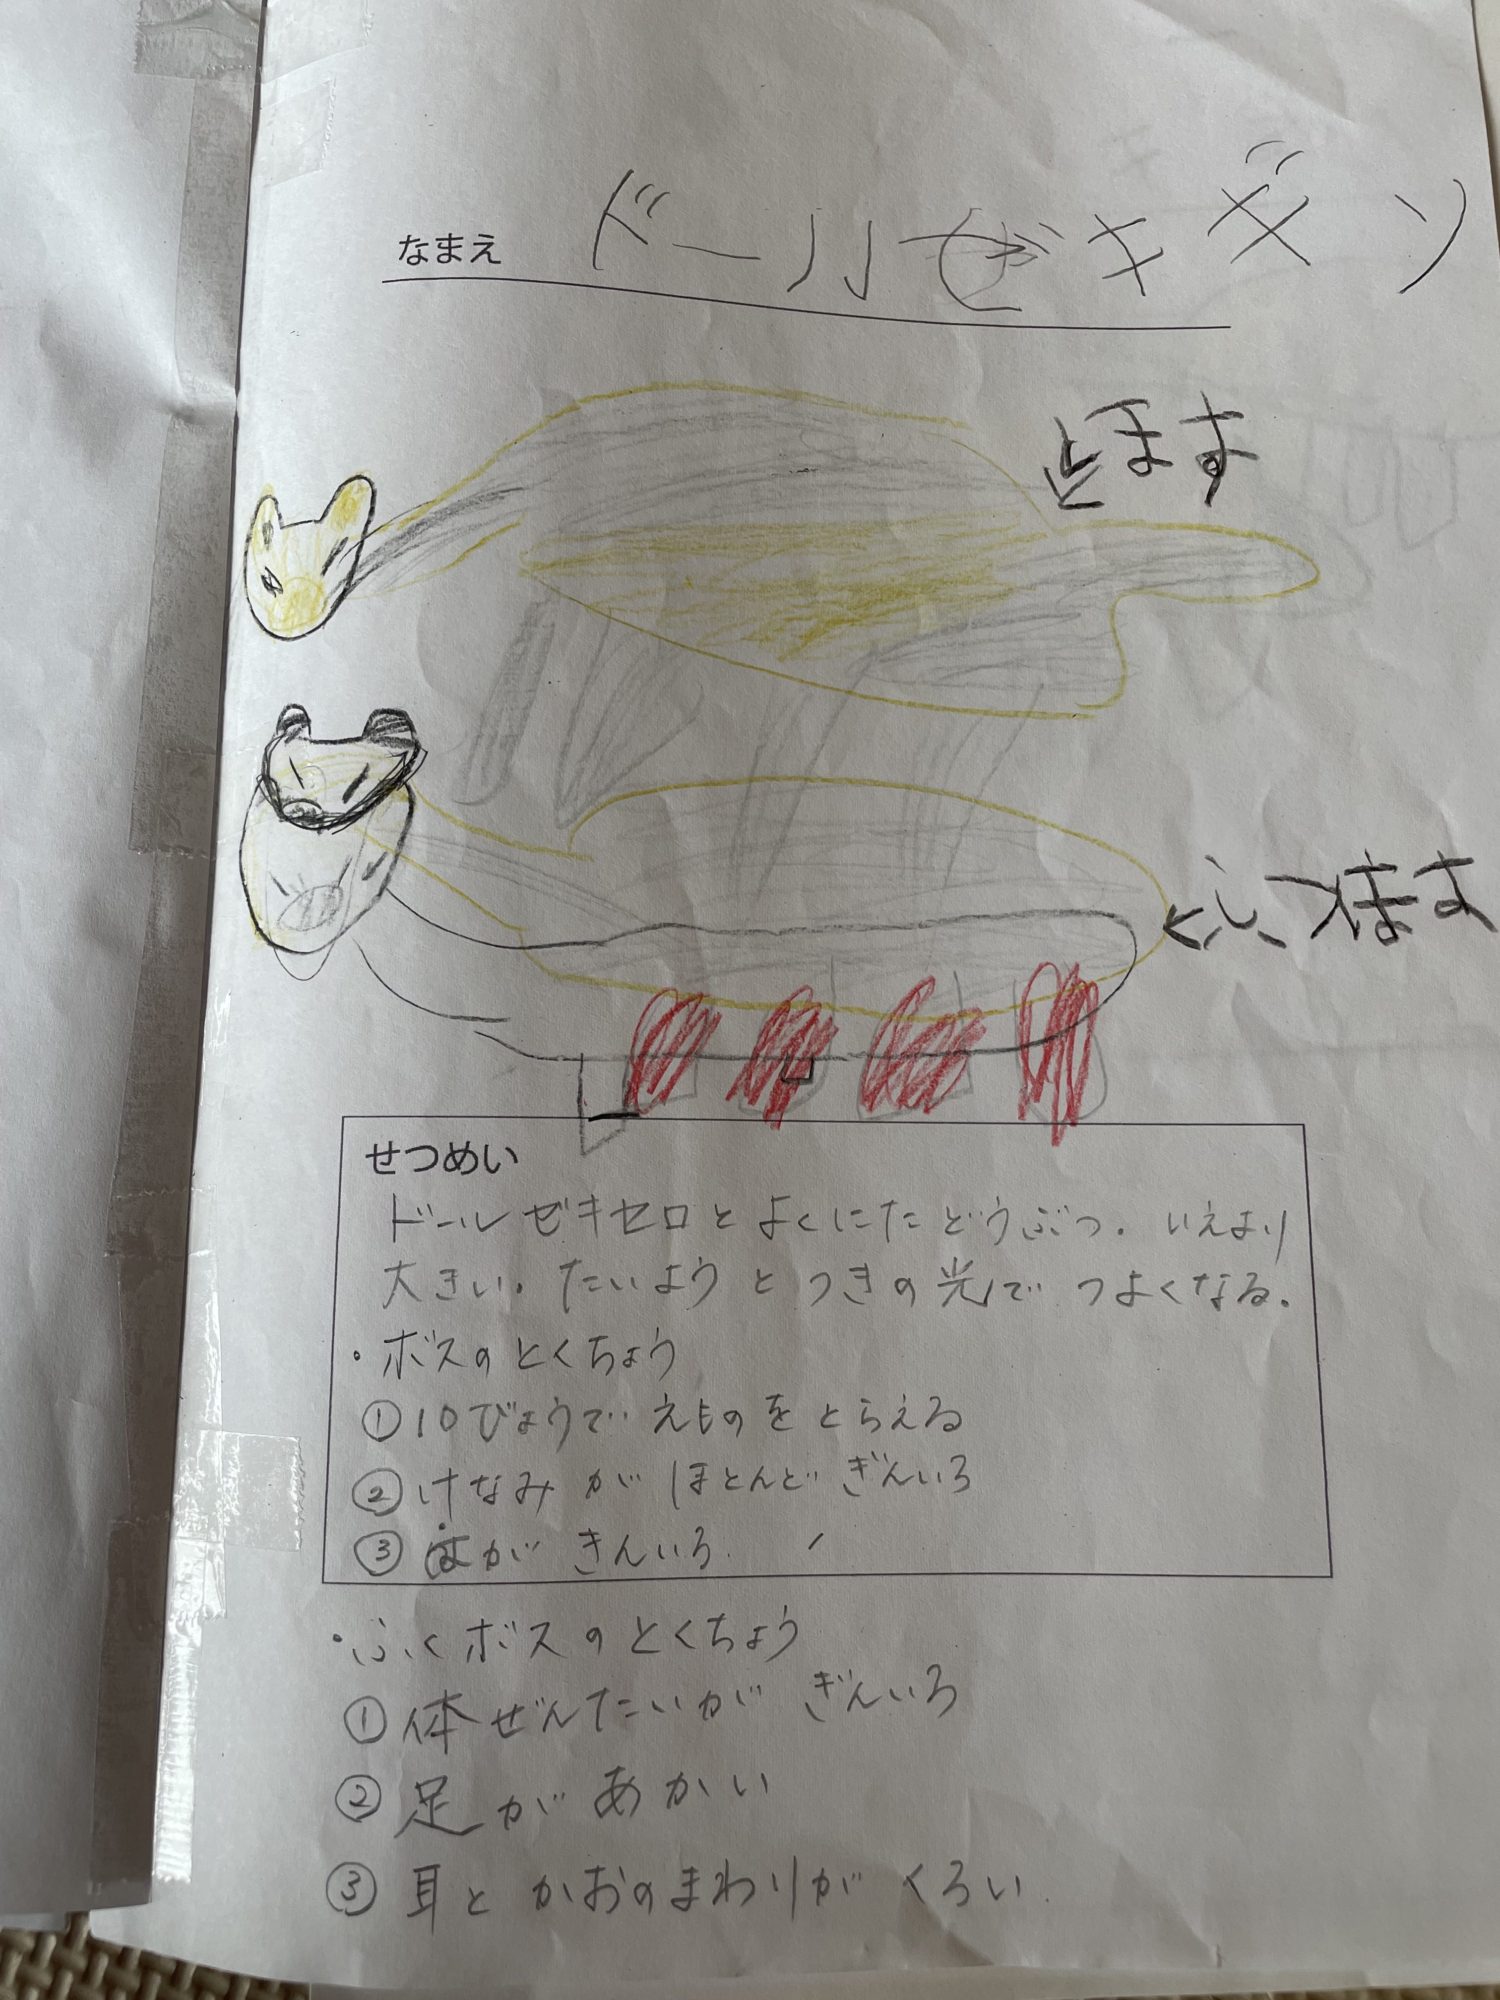 なまえ ドールゼキダン
とます
ふつますす
せつめい
ドールゼキセロとよくにたどうぶつ。いえより
大きい。たいようとつきの光でつよくなる。
・ボスのとくちょう
①10びょうでえものをとらえる
②けなみがほとんどぎんいろ
③はがきんいろ
・ふくボスのとくちょう
①体ぜんたいがぎんいろ
②足があかい
③耳とかおのまわりがくろい